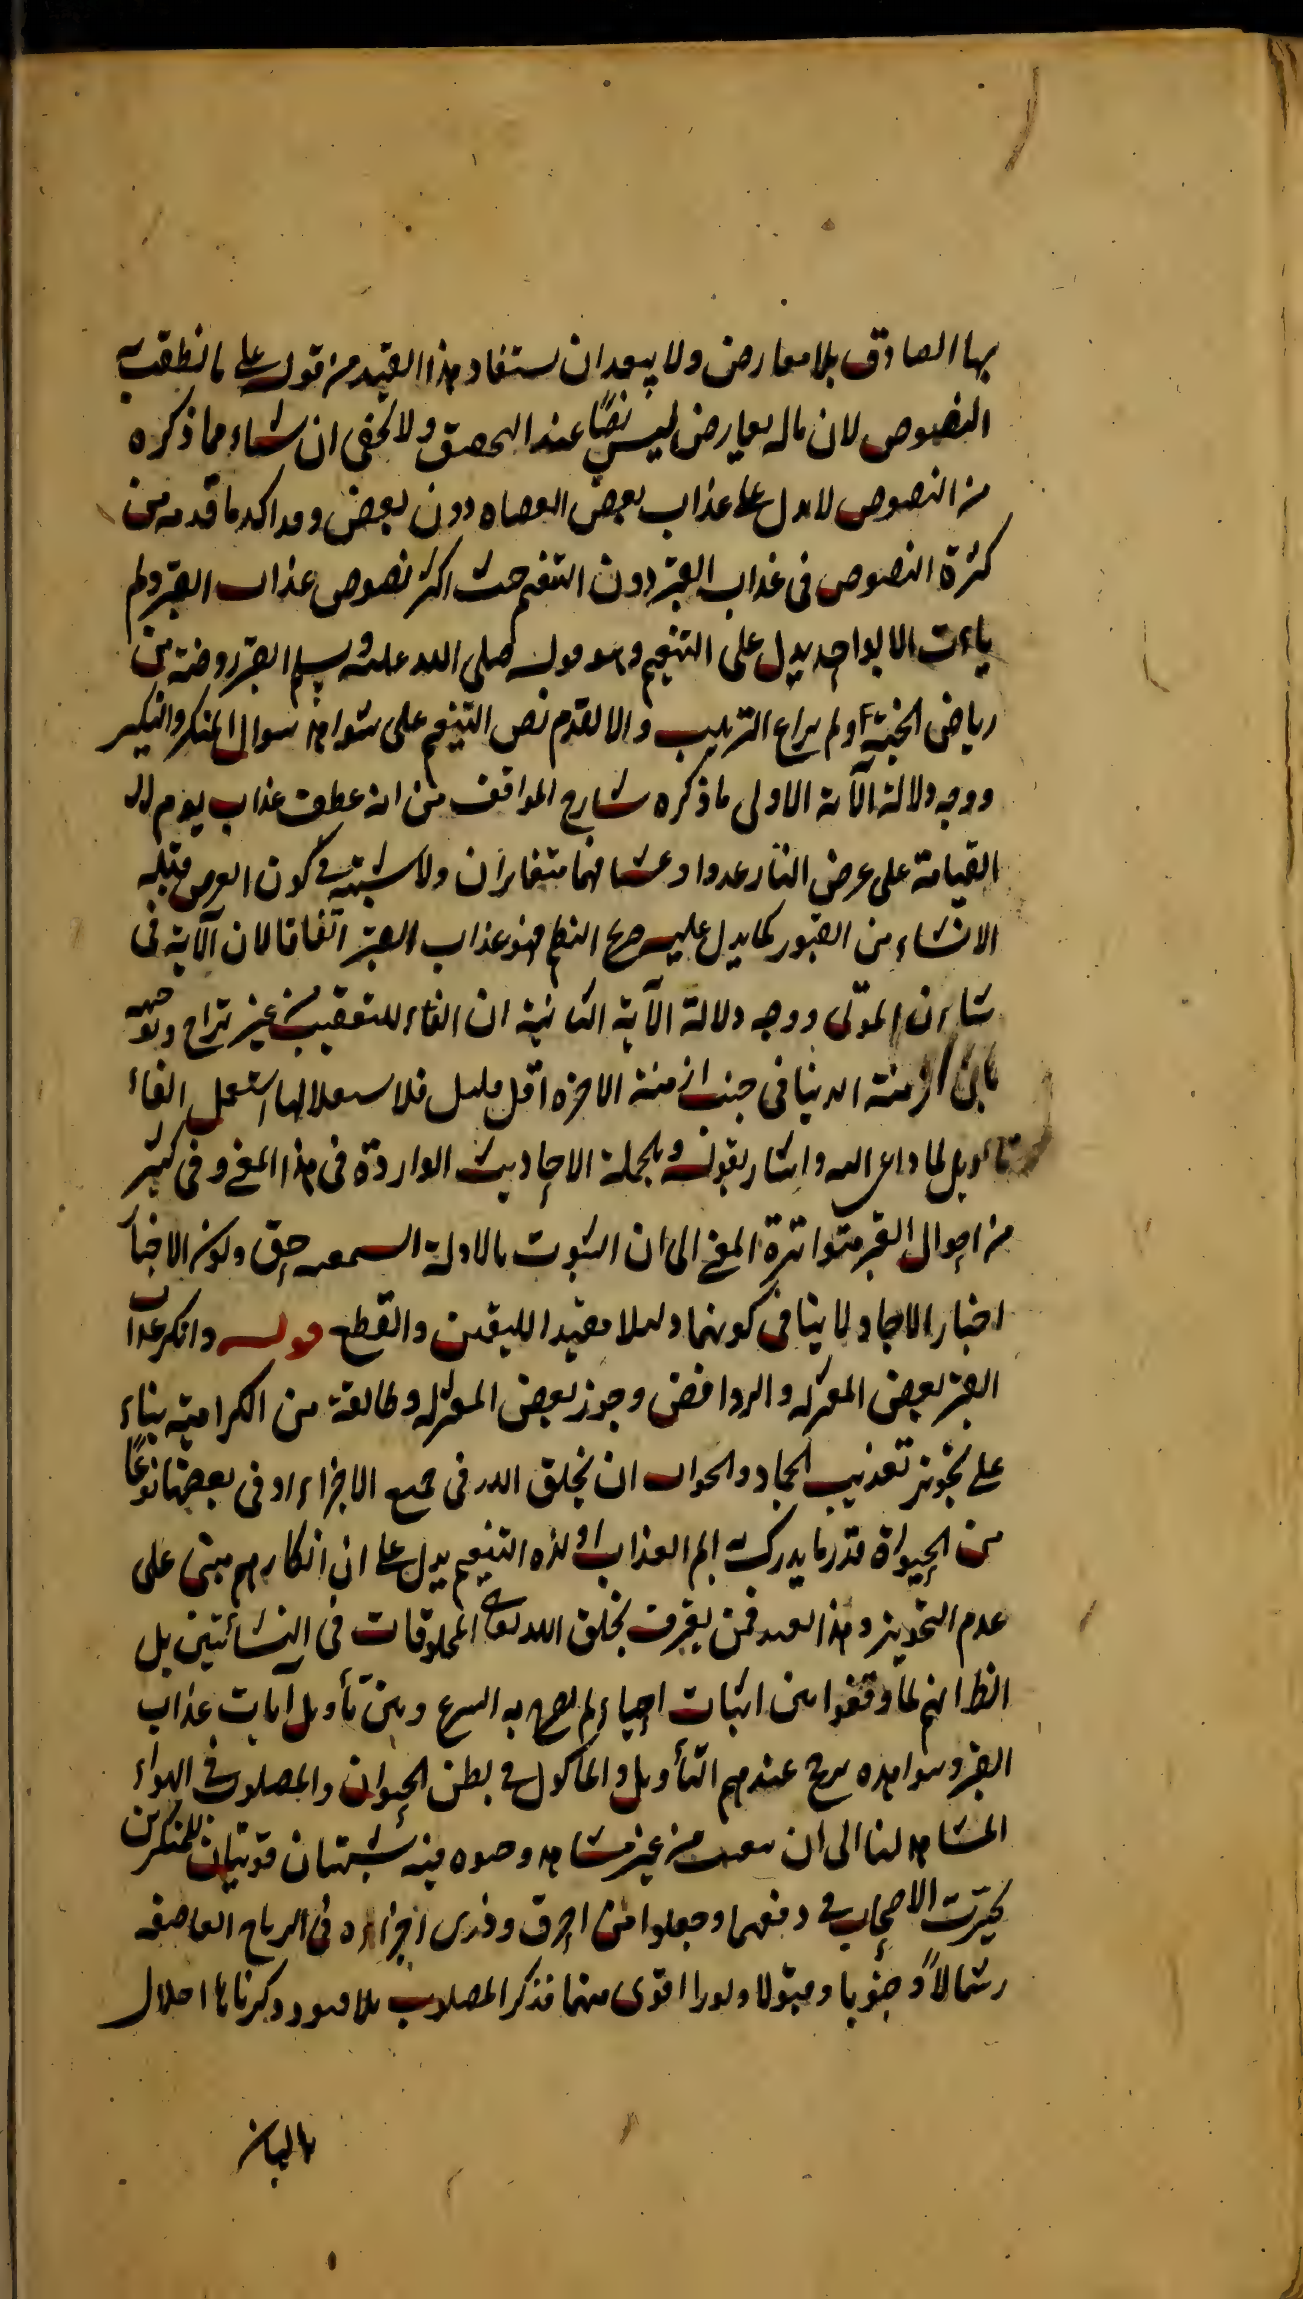 بها الصادق بلا معارض ولا يبعد ان يستفاد هذا القيد من قوله على ما نطقت به
النصوص لان ماله معارض ليس نصًا عند التحقيق ولا يخفى ان شيئا مما ذكره
من النصوص لا يدل على عذاب بعض العصاه دون بعض وقد اكد ما قدمه من
كثرة النصوص في عذاب القبر دون التنعيم حيث اكثر نصوص عذاب القبر ولم
يأت الا بواحد يدل على التنعيم وهو قوله صلى الله عليه وسلم القبر روضة من
رياض الجنة ولم يراع الترتيب والا لقدم نص التنعيم على شواهد سوال المنكر والنكير
ووجه دلالة الآية الاولى ما ذكره شارح المواقف من انه عطف عذاب يوم
القيامة على عرض النار غدوا وعشيا فهما متغايران ولا شبهة في كون العرض قبله
الانشاء من القبور كما يدل عليه صريح النظم فهو عذاب القبر اتفاقا لان الآية في
شان الموتى ووجه دلالة الآية الثانية ان الفاء للتعقيب من غير تراخ وتوجيهه
بان ازمنة الدنيا في جنب ازمنة الاخرة اقل قليل فلاستقلالها استعمل الفاء
تأويل لما داعى اليه واشار بقوله وبالجملة الاحاديث الواردة في هذا المعنى وفي كثير
من احوال القبر متواترة المعنى الى ان الثبوت بالادلة السمعية حق وكون الاخبار
اخبار الاحاد لا ينافي كونها دليلا مفيدا لليقين والقطع قوله وانكر عذاب
القبر بعض المعتزلة والروافض وجوز بعض المعتزلة وطائفة من الكرامية بناء
على تجويز تعذيب الجماد والجواب ان يخلق الله في جميع الاجزاء او في بعضها نوعًا
من الحيواة قدر ما يدرك به الم العذاب او لذه التنعيم يدل على ان انكارهم مبنى على
عدم التجويز وهذا بعيد فمن يعترف بخلق الله تعالى المخلوقات في النشأتين بل
الظ انهم لما وقفوا بين اثبات احياء لم يصرح به الشرع وبين تأويل آيات عذاب
القبر وشواهده رجح عندهم التأويل والماكول في بطن الحيوان والمصلوب في الهواء
المشاهد لنا الى ان من غير مشاهدة حيوة فيه شبهتان قويتان للمنكرين
تحيرت الاصحاب في دفعهما وجعلوا من احرق وذرى اجزاؤه في الرياح العاصفة
شمالاً وجنوبا وقبولا ودبورا اقوى منهما فذكر المصلوب بلا وذكرنا ها اخلال
بالبيان